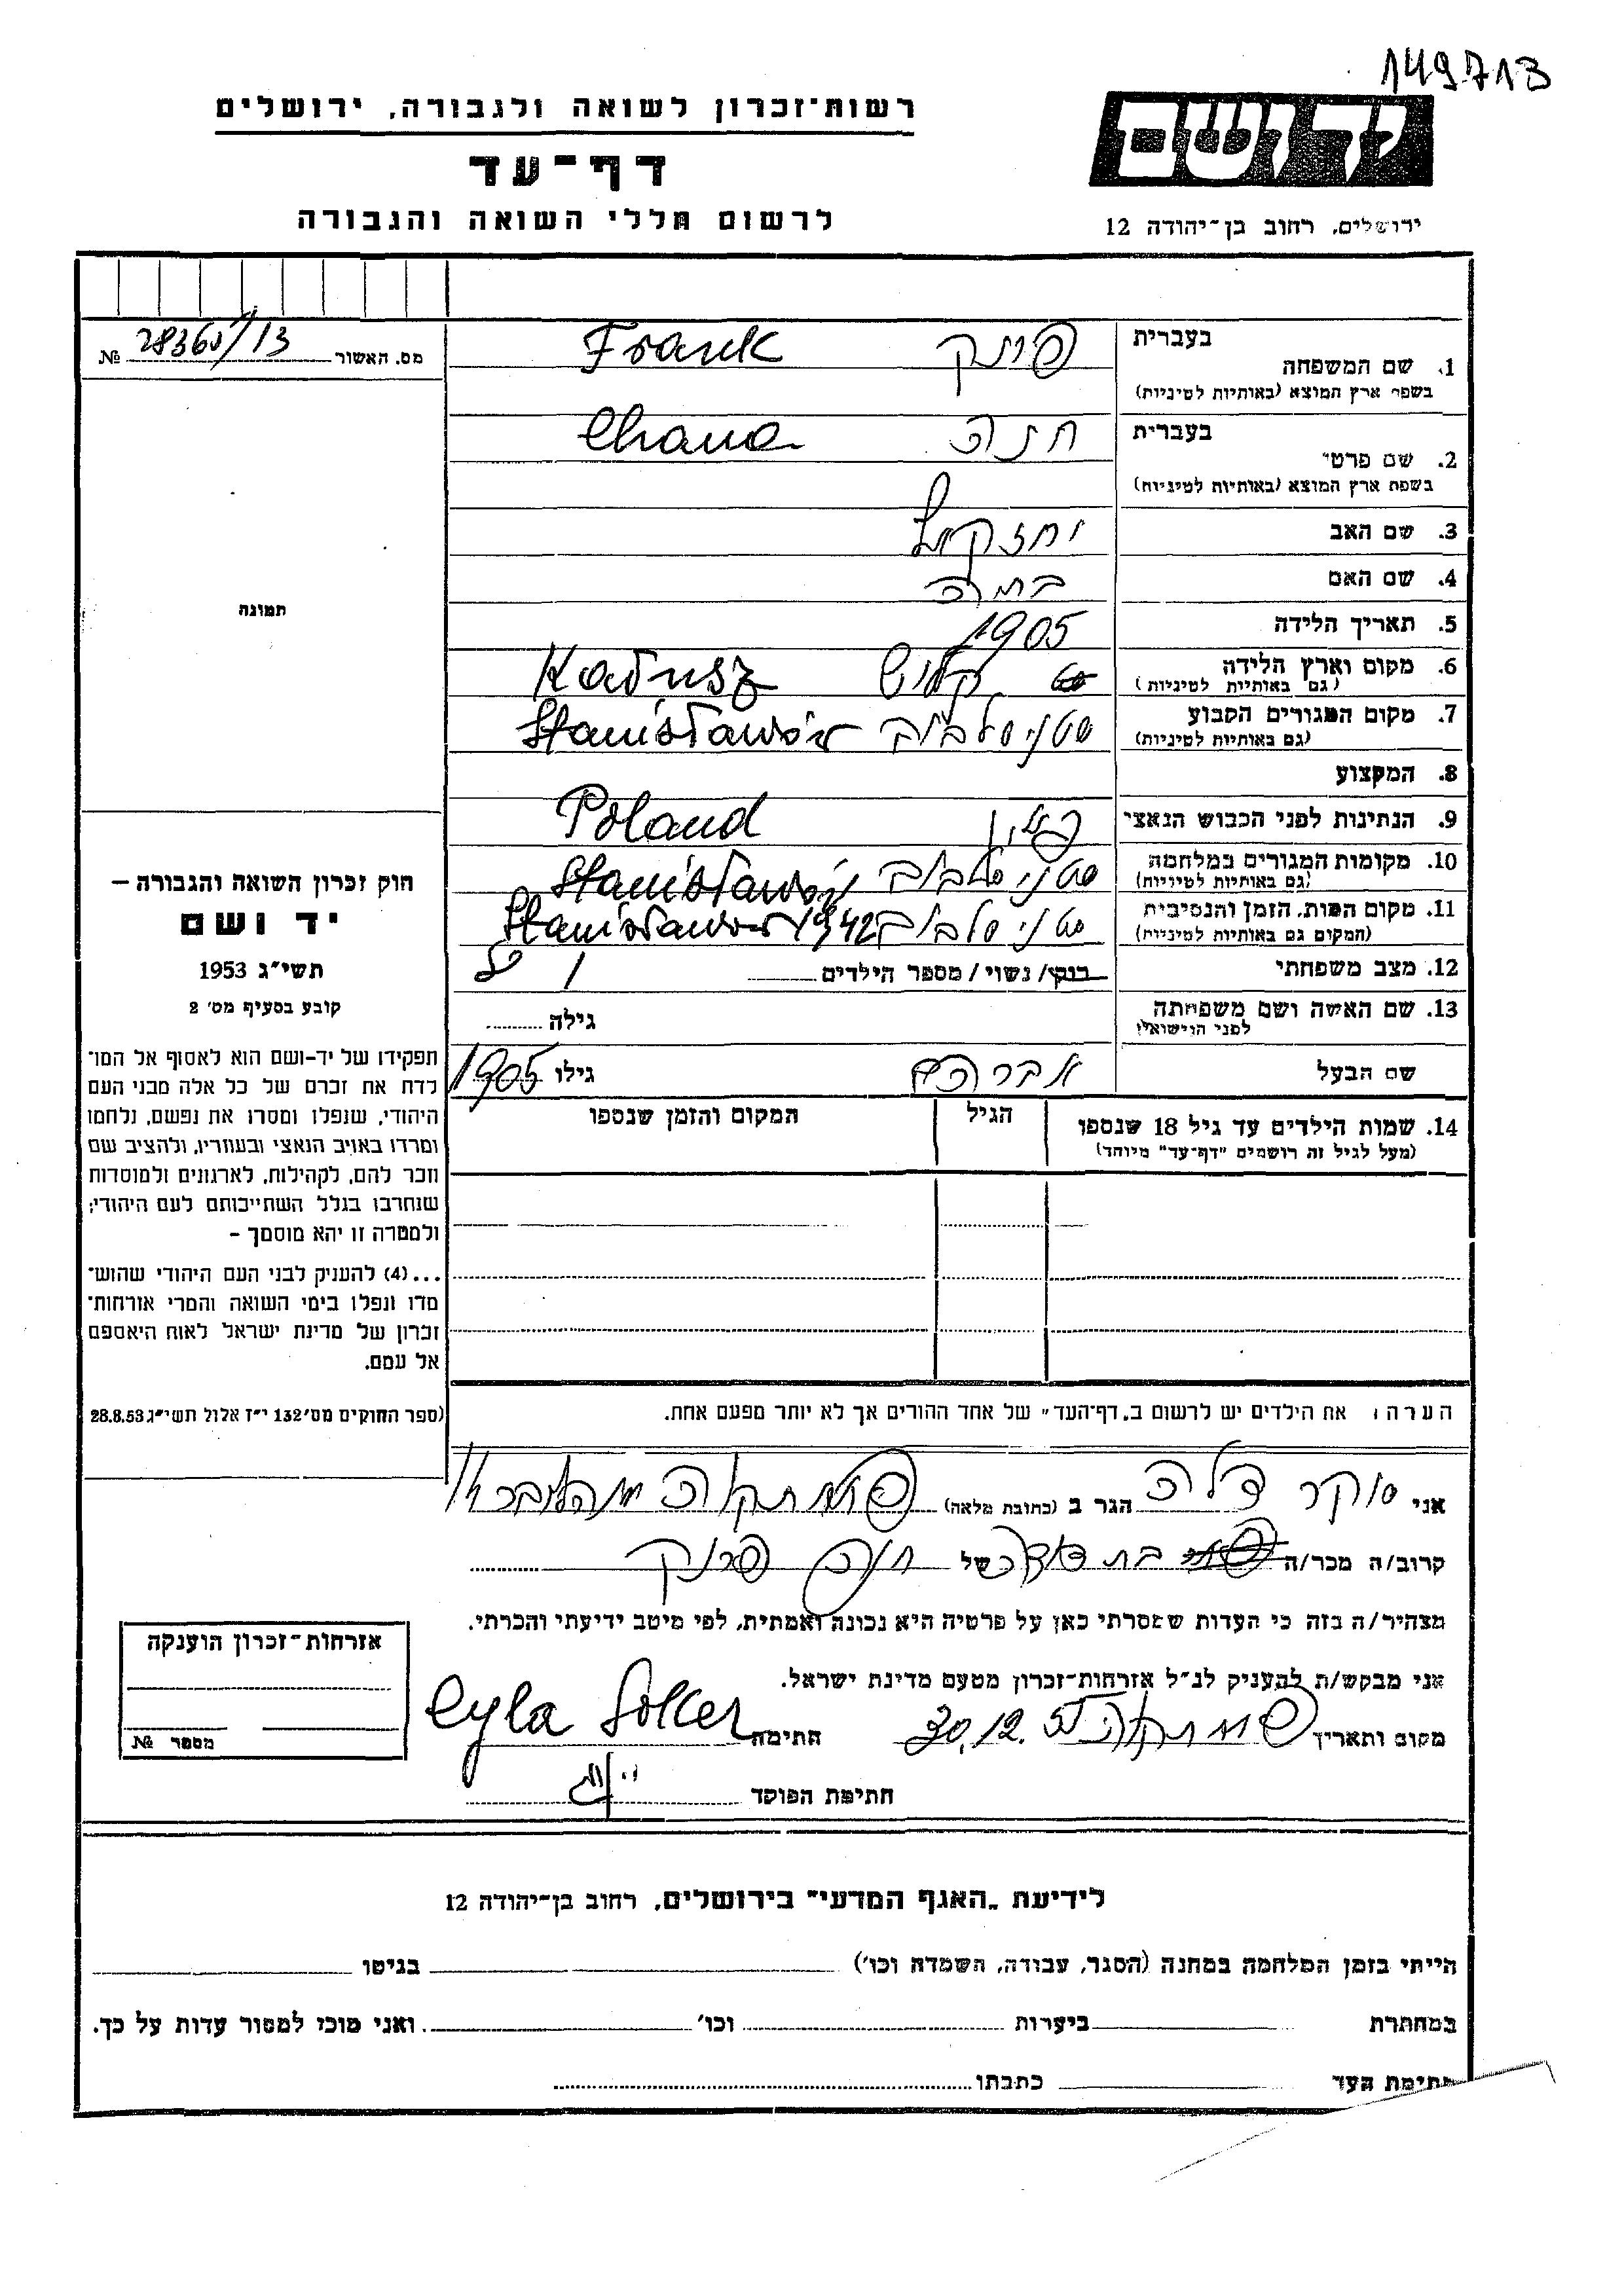 149713
ידושם
רשות-זכרון לשואה ולגבורה, ירושלים
דף-עד
לרשום חללי השואה והגבורה
ירושלים, רחוב בן-יהודה 12
מס. האשור 28365/13 №
בעברית
1. שם המשפחה
בשפת ארץ המוצא (באותיות לטיניות)
פרנק Frank
בעברית
2. שם פרטי
בשפת ארץ המוצא (באותיות לטיניות)
חנה Chana
3. שם האב יחזקאל
4. שם האם
5. תאריך הלידה 1905
6. מקום וארץ הלידה
(גם באותיות לטיניות)
קלוש Kałusz
7. מקום המגורים הקבוע
(גם באותיות לטיניות)
סטניסלבוב Stanisławów
8. המקצוע
9. הנתינות לפני הכבוש הנאצי פולין Poland
10. מקומות המגורים במלחמה
(גם באותיות לטיניות)
סטניסלבוב Stanisławów
11. מקום המות, הזמן והנסיבות
(המקום גם באותיות לטיניות)
סטניסלבוב 1942 Stanisławów
12. מצב משפחתי רוק/ נשוי/ מספר הילדים 1
13. שם האשה ושם משפחתה
לפני הנישואין
גילה
שם הבעל אברהם גילו 1905
14. שמות הילדים עד גיל 18 שנספו
(מעל לגיל זה רושמים "דף-עד" מיוחד)
הגיל
המקום והזמן שנספו
תמונה
חוק זכרון השואה והגבורה –
יד ושם
תשי"ג 1953
קובע בסעיף מס' 2
תפקידו של יד-ושם הוא לאסוף אל המו־
לדת את זכרם של כל אלה מבני העם
היהודי, שנפלו ומסרו את נפשם, נלחמו
ומרדו באויב הנאצי ובעוזריו, ולהציב שם
וזכר להם, לקהילות, לארגונים ולמוסדות
שנחרבו בגלל השתייכותם לעם היהודי;
ולמטרה זו יהא מוסמך –
...(4) להעניק לבני העם היהודי שהוש־
מדו ונפלו בימי השואה והמרי אזרחות־
זכרון של מדינת ישראל לאות היאספם
אל עמם.
(ספר החוקים מס' 132 י"ז אלול תשי"ג 28.8.53
הערה: את הילדים יש לרשום ב"דף-העד" של אחד ההורים אך לא יותר מפעם אחת.
אני סוקר צילה הגר ב (כתובת מלאה) פתח תקוה
קרוב/ה מכר/ה בת דודה של חנה פרנק
מצהיר/ה בזה כי העדות שמסרתי כאן על פרטיה היא נכונה ואמתית, לפי מיטב ידיעתי והכרתי.
אני מבקש/ת להעניק לנ"ל אזרחות-זכרון מטעם מדינת ישראל.
מקום ותאריך פתח תקוה 30.12. חתימה Cyla Soker
חתימת הפוקד
אזרחות-זכרון הוענקה
מספר №
לידיעת "האגף המדעי" בירושלים, רחוב בן-יהודה 12
הייתי בזמן המלחמה במחנה (הסגר, עבודה, השמדה וכו') בגיטו
במחתרת ביערות וכו' ואני מוכן למסור עדות על כך.
חתימת העד כתבתו